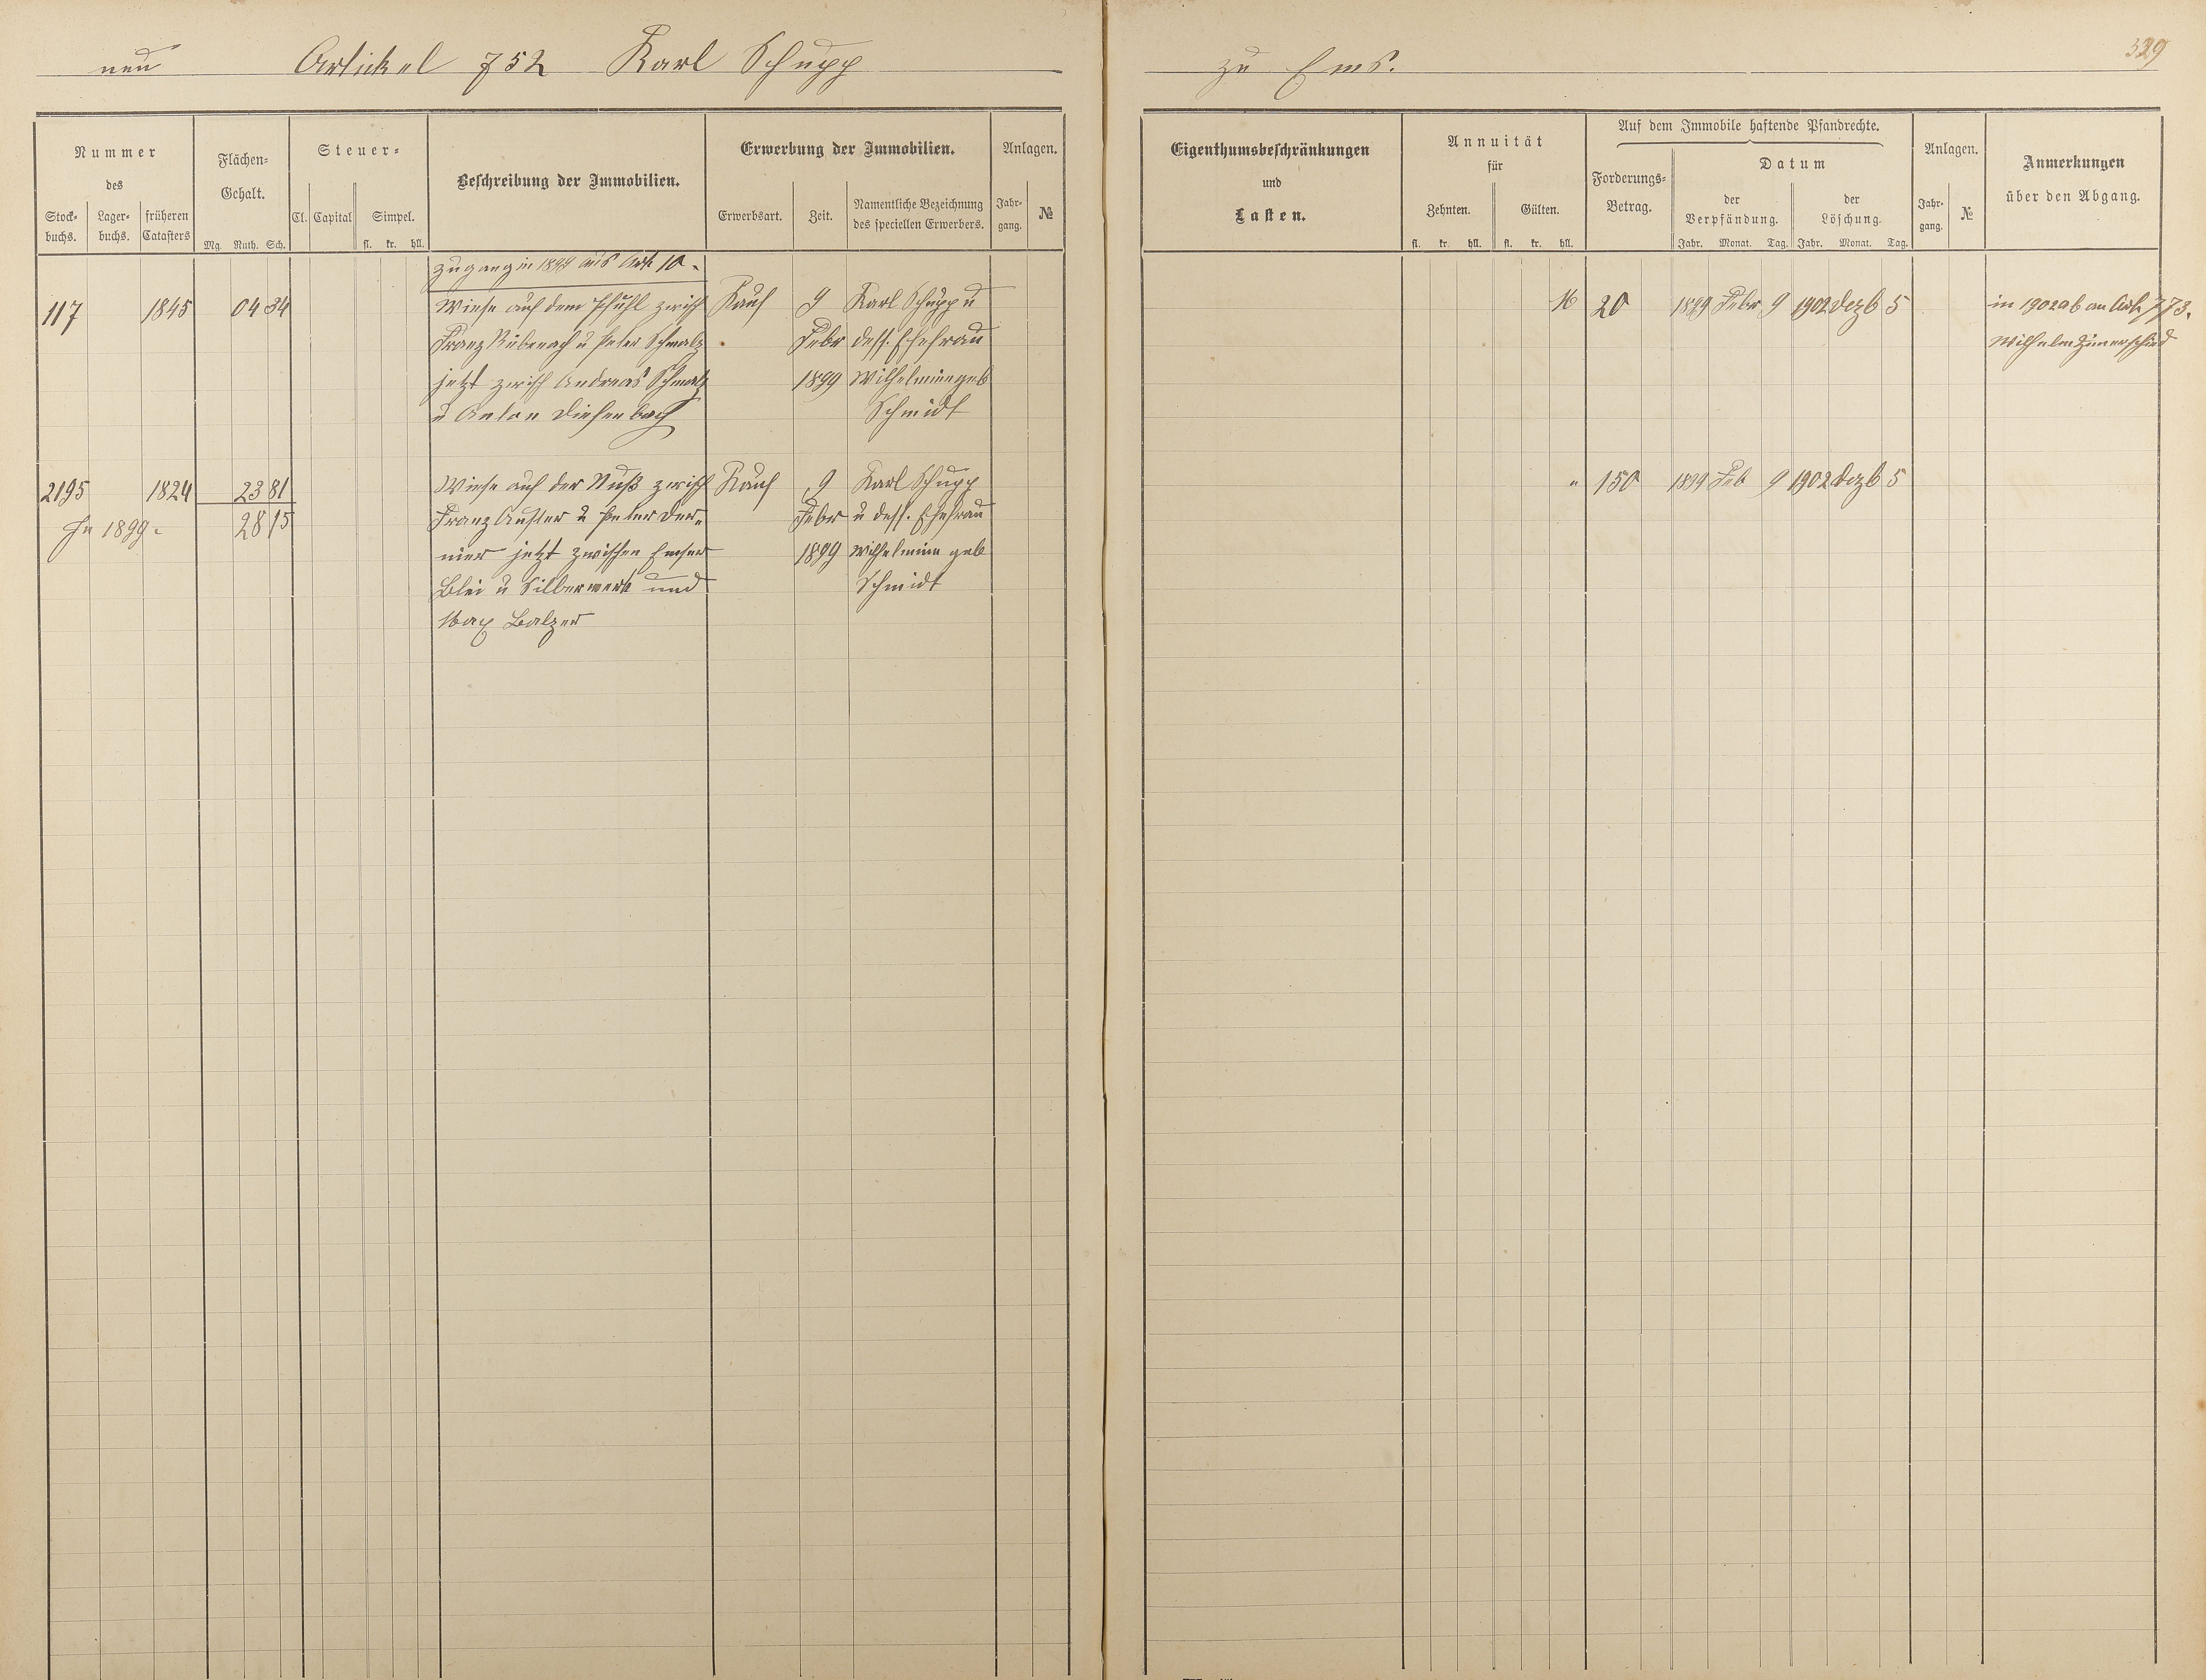 neu Artickel 752 Karl Schupp zu Ems.
329
Nummer
des
Stock-
buchs.
Lager-
buchs.
früheren
Catasters
Flächen-
Gehalt.
Mg. Ruth. Sch.
Steuer-
Cl. Capital Simpel.
fl. kr. hll.
Beschreibung der Immobilien.
Erwerbung der Immobilien.
Erwerbsart. Zeit.
Namentliche Bezeichnung
des speciellen Erwerbers.
Anlagen.
Jahr-
gang.
№
Eigenthumsbeschränkungen
und
Lasten.
Annuität
für
Zehnten. Gülten.
fl. kr. hll. fl. kr. hll.
Auf dem Immobile haftende Pfandrechte.
Forderungs-
Betrag.
Datum
der
Verpfändung.
der
Löschung.
Jahr. Monat. Tag. Jahr. Monat. Tag.
Anlagen.
Jahr-
gang.
№
Anmerkungen
über den Abgang.
Zugang in 1899 aus Art. 10.
117 1845 04 34 Wiese auf dem Pfuhl zwisch Kauf 9 Karl Schupp u
Franz Rübenach u Peter Schmalz Febr dess. Ehefrau
jetzt zwisch Andreas Schmalz 1899 Wilhelmine geb
u Anton Diefenbach Schmidt
M 20 1899 Febr 9 1902 Dezb 5 in 1902 ab an Art. 773.
Wilhelm Zimerschied
2195 1824 23 81 Wiese auf der Nuß zwisch Kauf 9 Karl Schupp
In 1899. 28 15 Franz Auster u Peter Der- Febr u dess. Ehefrau
nier jetzt zwischen Emser 1899 Wilhelmine geb
Blei u Silberwerk und Schmidt
Max Balzer
" 150 1899 Feb 9 1902 Dezb 5